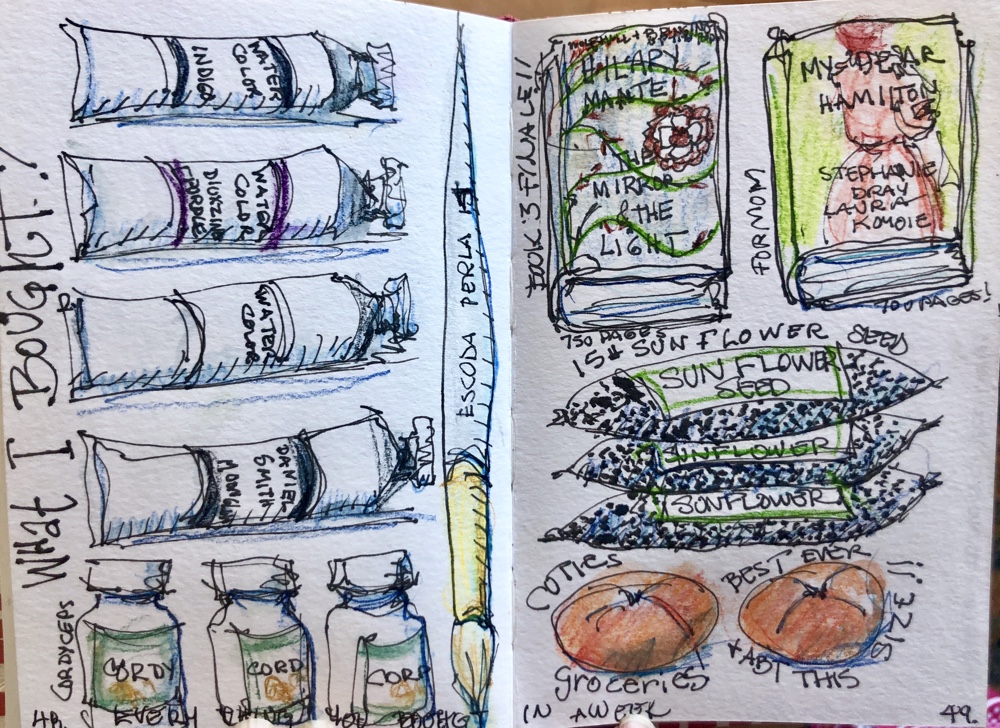 What I BOUGHT!
WATER
COLOR
INDIGO
WATER
COLOR
WATER
COLOR
DANIEL
SMITH
ESCODA PERLA
CORDYCEPS
CORDY
CORD
CORD
48.
EVERY THING YOU BOUGHT
BOOK 3 FINALE!!
HILARY
MANTEL
THE
MIRROR
& THE
LIGHT
750 PAGES
FOR MOM
MY DEAR
HAMILTON
STEPHANIE
DRAY
LAURA
KOMOIE
700 PAGES!
15# SUNFLOWER SEED
SUNFLOWER
SEED
SUNFLOWER
SUNFLOWER
CUTIES
BEST EVER
groceries
THIS
IN A WEEK
49.